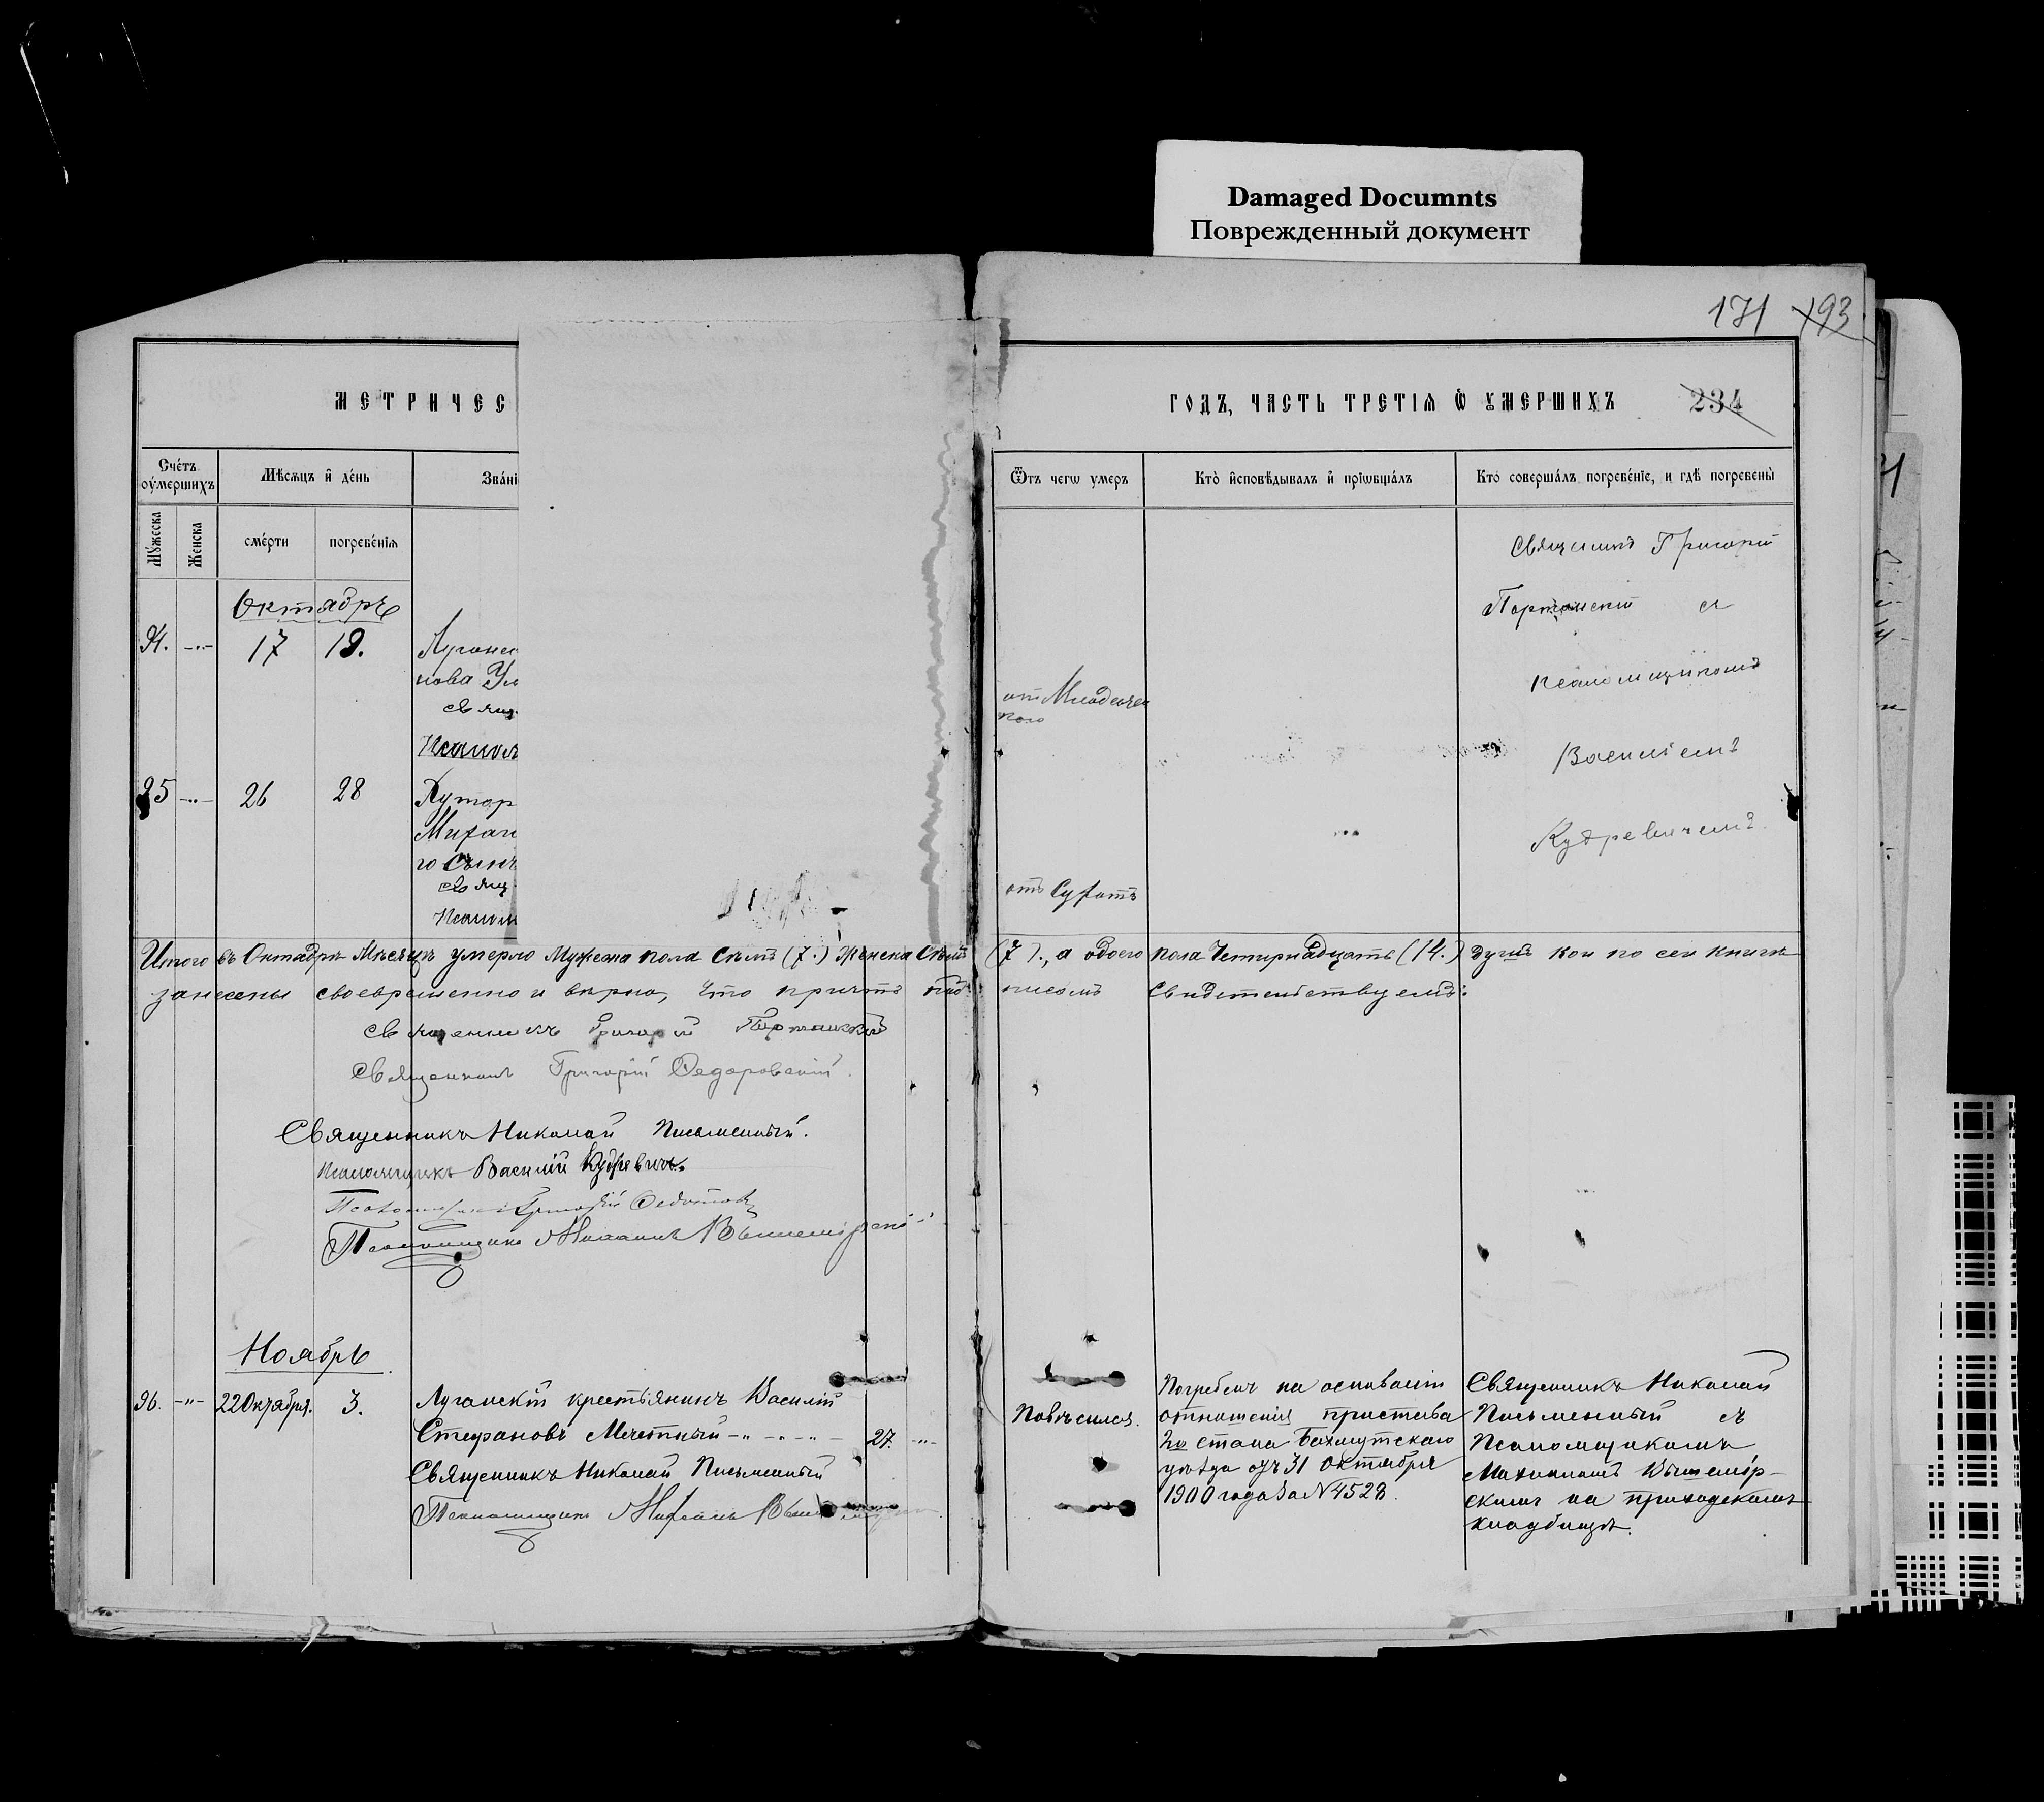 Damaged Documnts
Поврежденный документ
171 193
МЕТРИЧЕС
ГОДЪ, ЧАСТЬ ТРЕТІѦ Ѿ ОУМЕРШИХЪ 234
Счетъ оумершихъ
Мѣсѧцъ и день
Звані
Мужеска
Женска
смерти
погребеніѧ
Ѿтъ чегѡ умеръ
Кто исповѣдывалъ и пріѡбщалъ
Кто совершалъ погребеніе, и гдѣ погребены
Октябрь
17 19.
нова
свящ
Псалом
от Младенчес
каго
Священникъ Григорій
съ
псаломщикомъ
Василіемъ
Кудревичемъ.
95 26 28
Хутор
Михаи
го сынъ
свящ
Псалом
отъ Сухотъ
Итого въ Октябрѣ Мѣсяцѣ умерло Мужеска пола Семь (7.) Женска Семь (7)., а обоего пола Четырнадцать (14.) душъ кои по сей книгѣ
занесены своевременно и вѣрно, что причтъ под писомъ свидѣтельствуемъ:
Священникъ Григорій
Священникъ Григорій Федоровскій.
Священникъ Николай Письменный.
Псаломщикъ Василій Кудревичъ.
Псаломщикъ
Псаломщикъ Михаилъ Вышемірскій
Ноябрь
96. -"- 22 Октября. 3.
Луганскій крестьянинъ Василій
Стефановъ -"- -"- 27. -"-
Священникъ Николай Письменный
Псаломщикъ Михаилъ
Повѣсился.
Погребенъ на основаніи
отношенія пристава
2го стана Бахмутскаго
уѣзда отъ 31 Октября
1900 года за N 4528.
Священникъ Николай
Письменный съ
Псаломщикомъ
Михаиломъ Вышемір-
скимъ на приходскомъ
кладбищѣ.